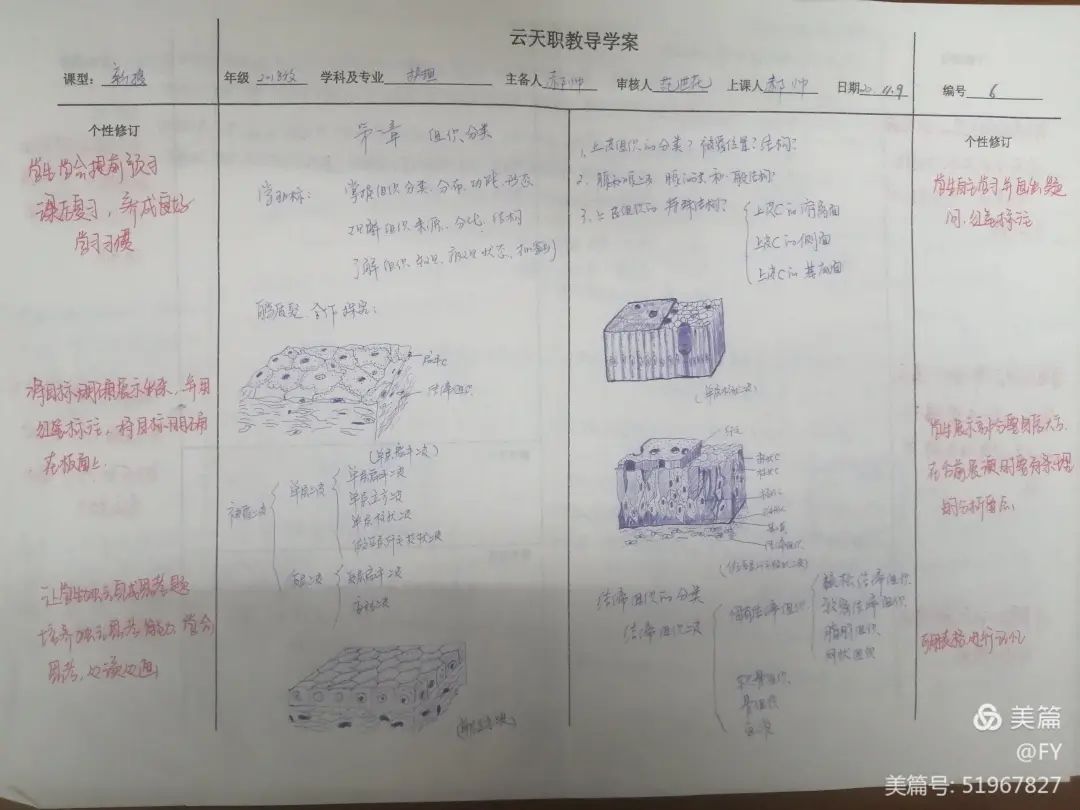 云天职教导学案
课型: 新授 年级 2018级 学科及专业 护理 主备人 郝帅 审核人 上课人 郝帅 日期 4.9 编号 6
个性修订
学生学会提前预习
课后复习，养成良好
学习习惯
将目标明确展示出来，并用
红笔标注，将目标明确
在板面上.
让学生独立完成思考题
培养独立思考能力，学会
思考，边读边画
第一章 组织分类
学习目标: 掌握组织分类、分布、功能、形态
理解组织来源、分化、结构
了解组织
合作探究:
扁平C
结缔组织
(单层扁平上皮)
被覆上皮
单层上皮
单层扁平上皮
单层立方上皮
单层柱状上皮
假复层纤毛柱状上皮
复层上皮
复层扁平上皮
变移上皮
1、上皮组织的分类？被覆位置？结构？
2、腺上皮 腺
3、上皮组织的特殊结构？
上皮C的游离面
上皮C的侧面
上皮C的基底面
(单层柱状上皮)
纤毛
柱状C
基膜
结缔组织
(假复层纤毛柱状上皮)
结缔组织的分类
结缔组织
固有结缔组织
疏松结缔组织
致密结缔组织
脂肪组织
网状组织
软骨组织
骨组织
血液
个性修订
学生自主学习并自出题
间，红笔标注
学生展示部分要自信大方.
在台前展演时要有条理
的分析重点.
用表格进行记忆
美篇
@FY
美篇号: 51967827